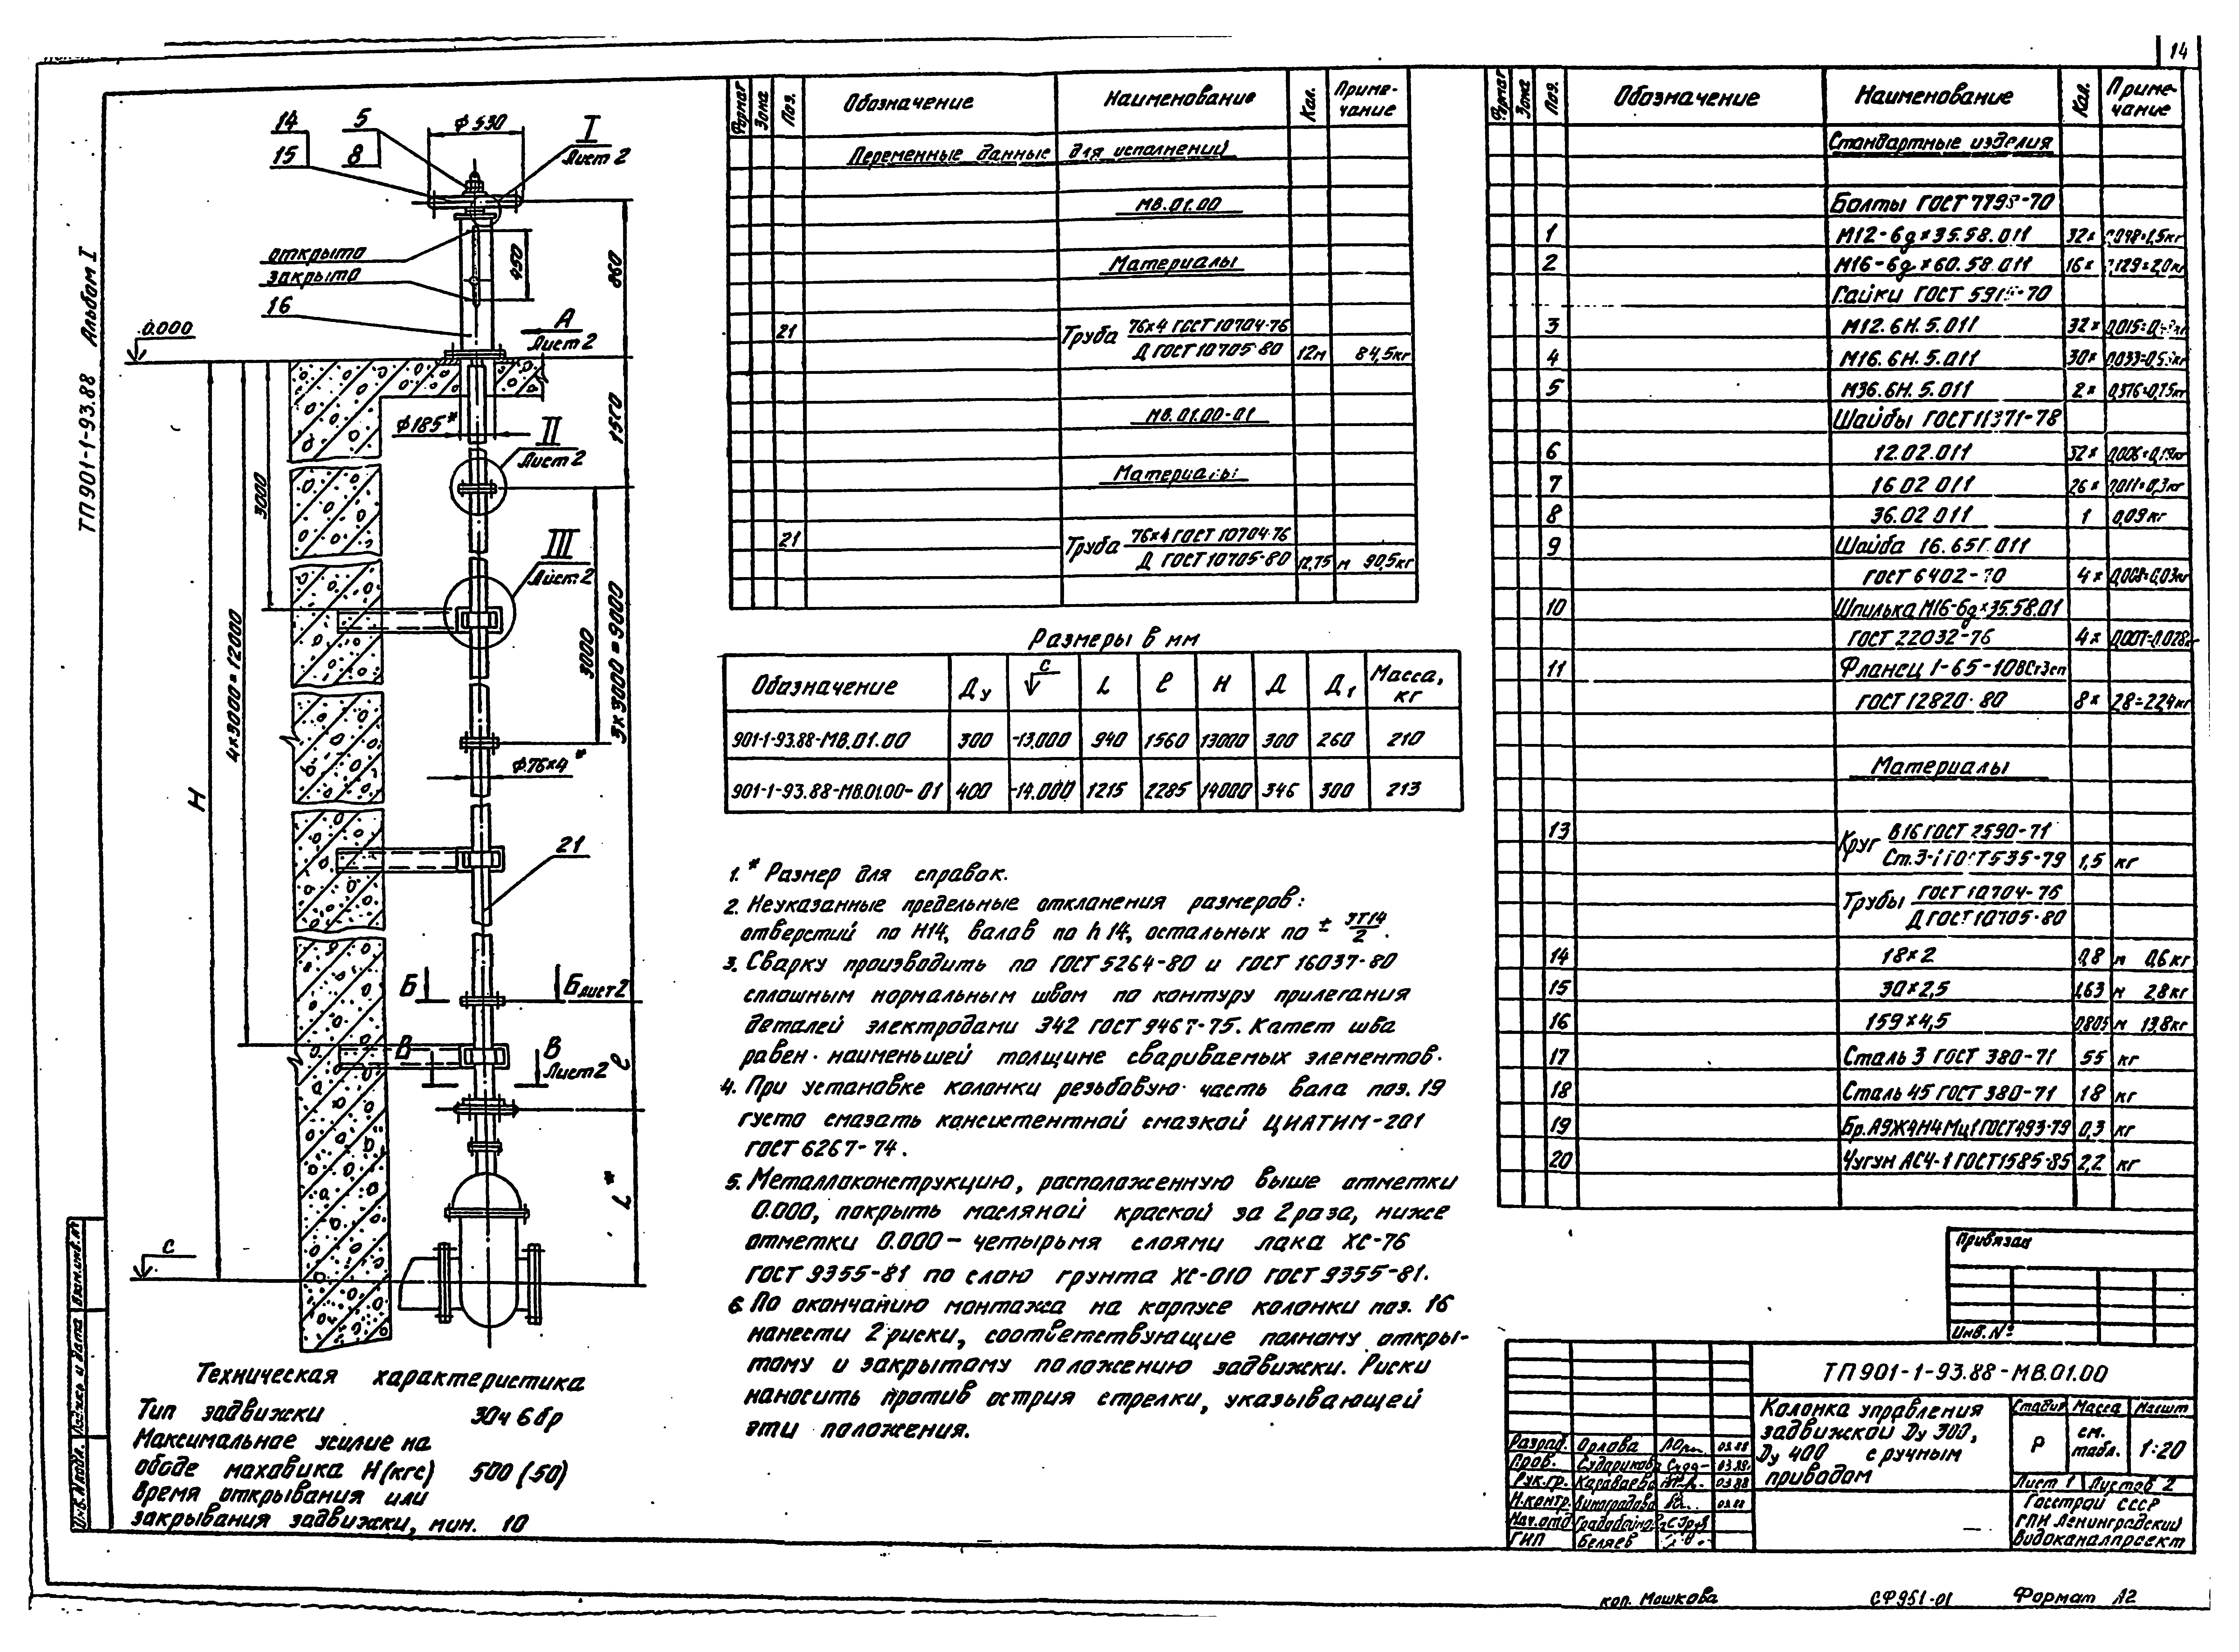 14
ТП 901-1-93.88 Альбом I
14
15
5
8
ф 530
I
Лист 2
открыто
закрыто
16
450
860
0.000
А
Лист 2
ф185*
1500
II
Лист 2
3000
III
Лист 2
4×3000=12000
3000
3×3000=9000
Н
ф76×4*
21
Б
Б лист 2
В
В
Лист 2
ℓ
L*
С
Техническая характеристика
Тип задвижки 30ч 6 бр
Максимальное усилие на
ободе маховика Н(кгс) 500 (50)
Время открывания или
закрывания задвижки, мин. 10
Формат Зона Поз. Обозначение Наименование Кол. Приме-
чание
Переменные данные для исполнений
МВ.01.00
Материалы
21 Труба 76×4 ГОСТ 10704-76
Д ГОСТ 10705-80 12м 84,5кг
МВ.01.00-01
Материалы
21 Труба 76×4 ГОСТ 10704-76
Д ГОСТ 10705-80 12,75 м 90,5кг
Размеры в мм
Обозначение Ду С L ℓ Н Д Д1 Масса,
кг
901-1-93.88-МВ.01.00 300 -13.000 940 1560 13000 300 260 210
901-1-93.88-МВ.01.00-01 400 -14.000 1215 2285 14000 346 300 213
1. * Размер для справок.
2. Неуказанные предельные отклонения размеров:
отверстий по Н14, валов по h14, остальных по ± IT14/2.
3. Сварку производить по ГОСТ 5264-80 и ГОСТ 16037-80
сплошным нормальным швом по контуру прилегания
деталей электродами Э42 ГОСТ 9467-75. Катет шва
равен наименьшей толщине свариваемых элементов.
4. При установке колонки резьбовую часть вала поз. 19
густо смазать консистентной смазкой ЦИАТИМ-201
ГОСТ 6267-74.
5. Металлоконструкцию, расположенную выше отметки
0.000, покрыть масляной краской за 2 раза, ниже
отметки 0.000 - четырьмя слоями лака ХС-76
ГОСТ 9355-81 по слою грунта ХС-010 ГОСТ 9355-81.
6. По окончанию монтажа на корпусе колонки поз. 16
нанести 2 риски, соответствующие полному откры-
тому и закрытому положению задвижки. Риски
наносить против острия стрелки, указывающей
эти положения.
Формат Зона Поз. Обозначение Наименование Кол. Приме-
чание
Стандартные изделия
Болты ГОСТ 7798-70
1 М12-6g×35.58.011 32× 0,048=1,5кг
2 М16-6g×60.58.011 16× 0,129=2,0кг
Гайки ГОСТ 5915-70
3 М12.6Н.5.011 32×
4 М16.6Н.5.011 30×
5 М36.6Н.5.011 2× 0,376=0,75кг
Шайбы ГОСТ 11371-78
6 12.02.011 32× 0,006=0,19кг
7 16 02 011 26× 0,011=0,3кг
8 36.02 011 1 0,09кг
9 Шайба 16.65Г.011
ГОСТ 6402-70 4× 0,008=0,03кг
10 Шпилька М16-6g×35.58.01
ГОСТ 22032-76 4× 0,007=0,028кг
11 Фланец 1-65-10ВСт3сп
ГОСТ 12820-80 8× 2,8=22,4кг
Материалы
13 Круг В16 ГОСТ 2590-71
Ст.3-1 ГОСТ 535-79 1,5 кг
Трубы ГОСТ 10704-76
Д ГОСТ 10705-80
14 18×2 0,8 м 0,6кг
15 30×2,5 1,63 м 2,8кг
16 159×4,5 0,805 м 13,8кг
17 Сталь 3 ГОСТ 380-71 55 кг
18 Сталь 45 ГОСТ 380-71 18 кг
19 Бр.А9Ж4Н4Мц1 ГОСТ 493-79 0,3 кг
20 Чугун АСЧ-1 ГОСТ 1585-85 2,2 кг
Привязан
Инв. №
ТП 901-1-93.88-МВ.01.00
Колонка управления
задвижкой Ду 300,
Ду 400 с ручным
приводом
Стадия Масса Масшт
Р см.
табл. 1:20
Лист 1 Листов 2
Госстрой СССР
ГПИ Ленинградский
Водоканалпроект
Разраб. Орлова 03.88
Пров. Сударикова 03.88
Рук.гр. Караваева 03.88
Н.контр. Виноградова 03.88
Нач.отд
ГИП Беляев
Инв.№ подл. Подпись и дата Взам.инв.№
коп. Мошкова СФ951-01 Формат А2